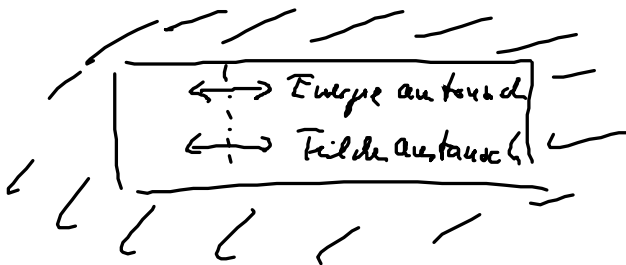 Energieaustausch
Teilchenaustausch